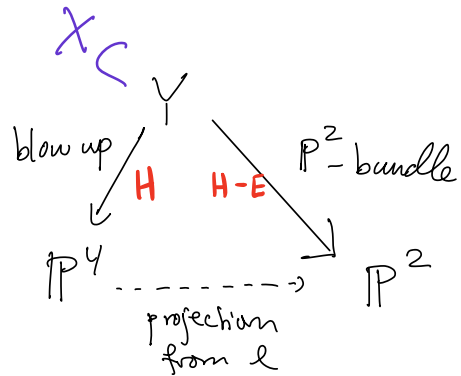 X
Y
blow up
P² - bundle
H
H-E
ℙ⁴
ℙ²
projection
from l